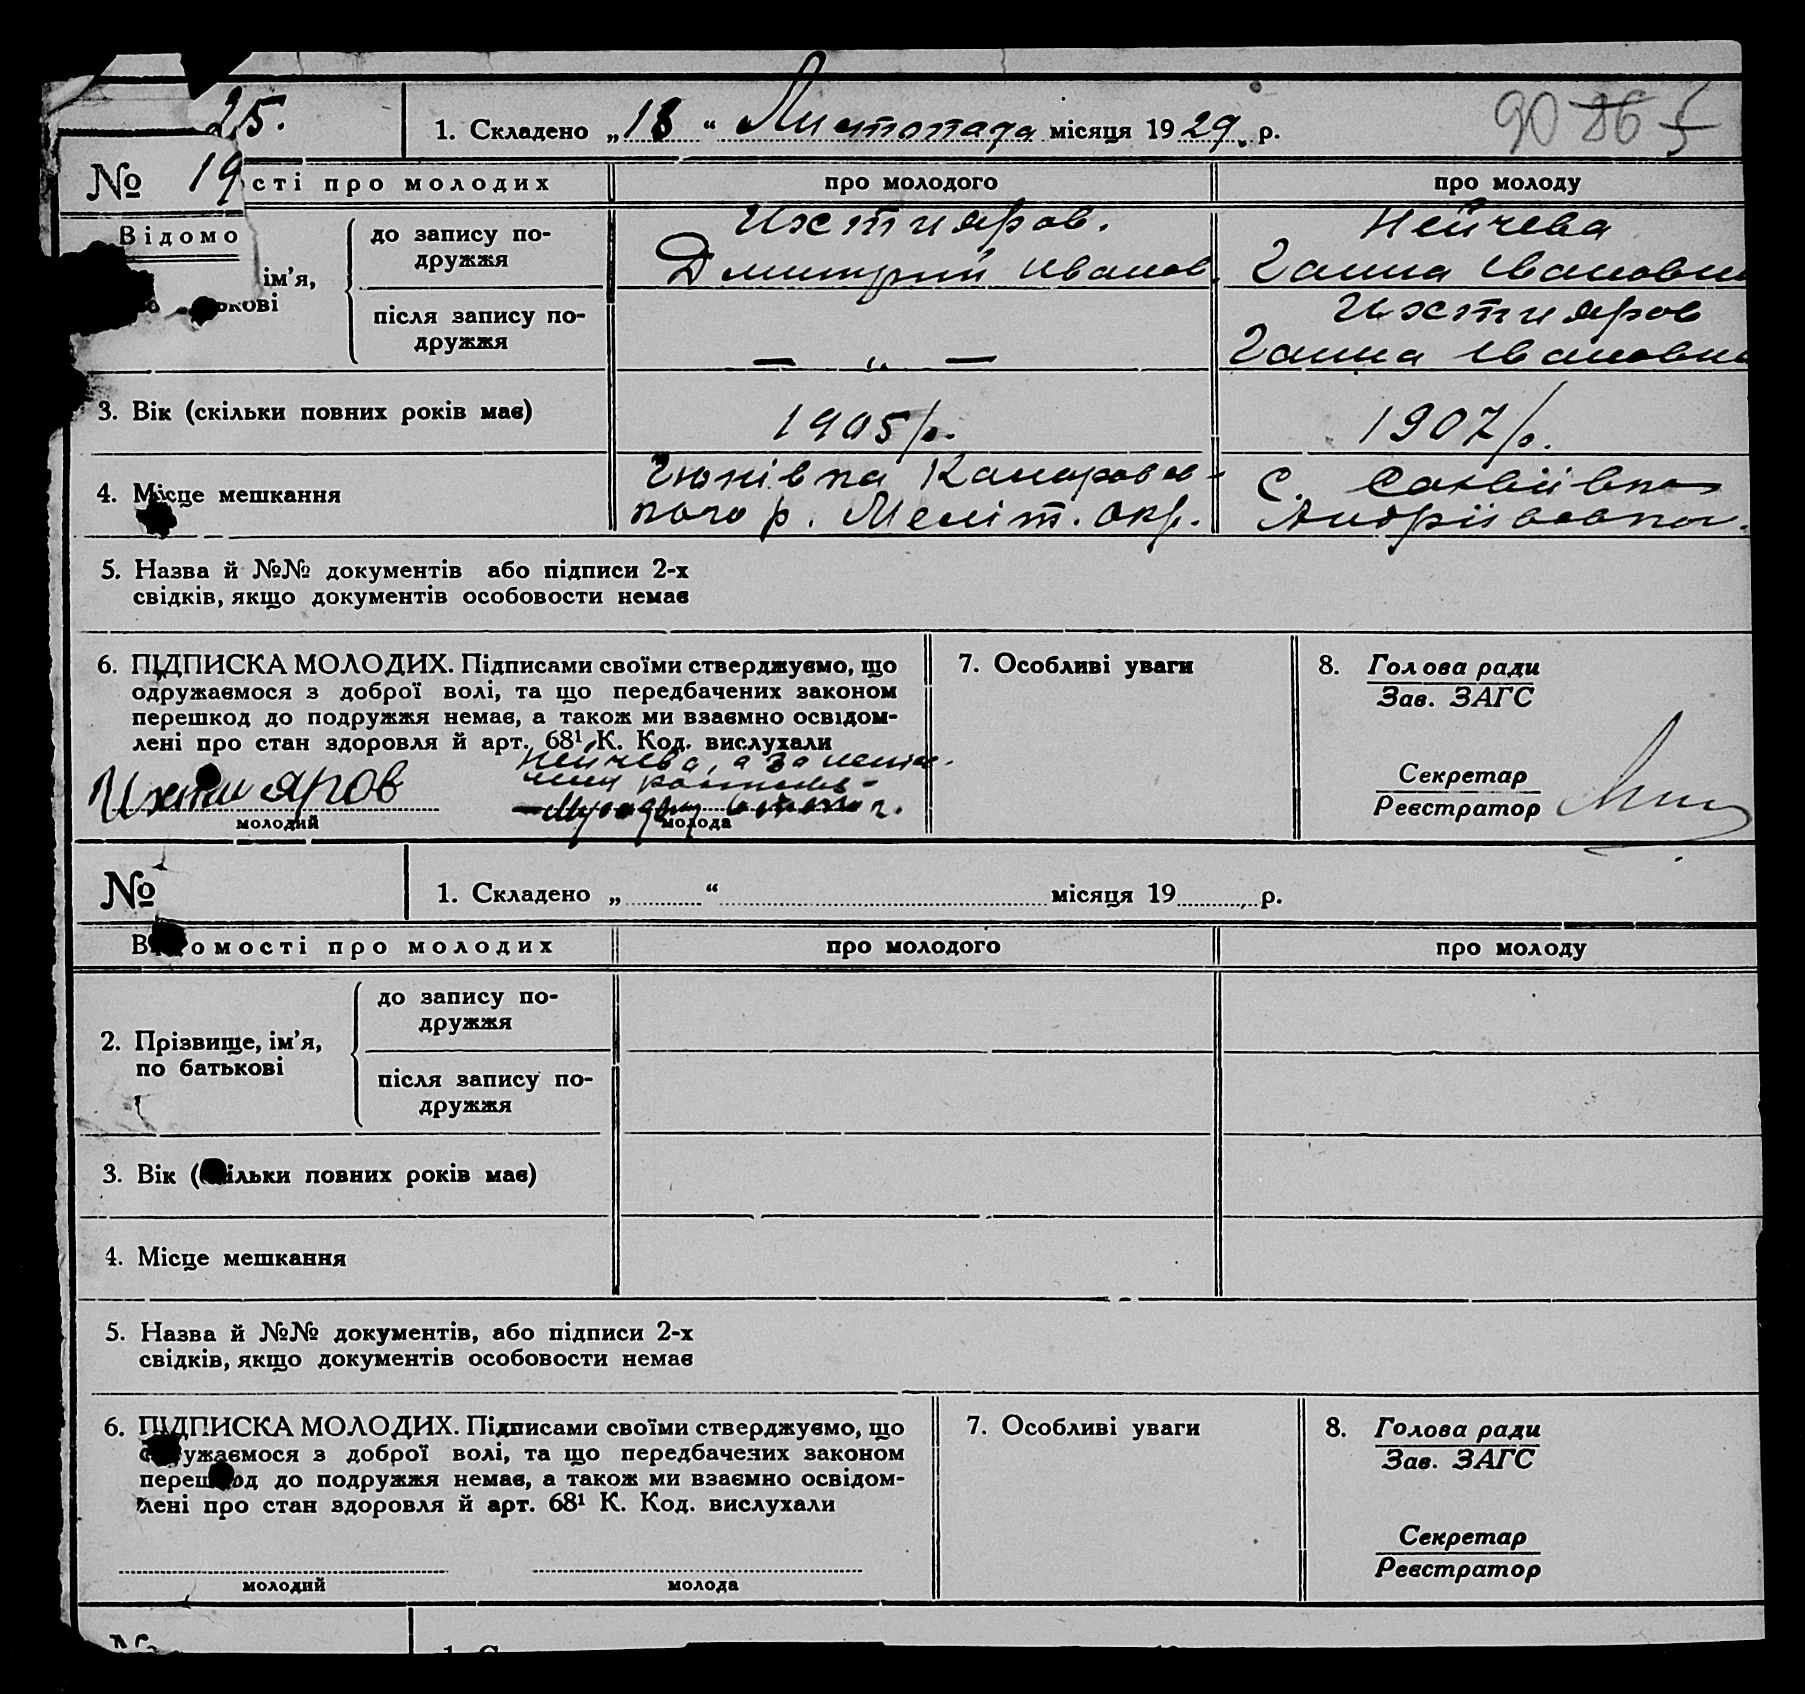 25.
1. Складено „18“ Листопада місяця 1929 р.
90 86 5
№ 19
сті про молодих
про молодого
про молоду
Відомо
ім’я,
кові
до запису по-
дружжя
Ихтияров.
Дмитрий Иванов
Нейчева
Ганна Ивановна
після запису по-
дружжя
— „ —
Ихтияров
Ганна Ивановна
3. Вік (скільки повних років має)
1905 р.
1907 р.
4. Місце мешкання
Гюнівка
р. Меліт. окр.
с. Софіївка
5. Назва й №№ документів або підписи 2-х
свідків, якщо документів особовости немає
6. ПІДПИСКА МОЛОДИХ. Підписами своїми стверджуємо, що
одружаємося з доброї волі, та що передбачених законом
перешкод до подружжя немає, а також ми взаємно освідом-
лені про стан здоровля й арт. 68¹ К. Код. вислухали
Ихтияров
молодий
Нейчева, а за
молода
7. Особливі уваги
8. Голова ради
Зав. ЗАГС
Секретар
Реєстратор
№
1. Складено „ “ місяця 19 р.
Відомості про молодих
про молодого
про молоду
2. Прізвище, ім’я,
по батькові
до запису по-
дружжя
після запису по-
дружжя
3. Вік (скільки повних років має)
4. Місце мешкання
5. Назва й №№ документів, або підписи 2-х
свідків, якщо документів особовости немає
6. ПІДПИСКА МОЛОДИХ. Підписами своїми стверджуємо, що
одружаємося з доброї волі, та що передбачених законом
перешкод до подружжя немає, а також ми взаємно освідом-
лені про стан здоровля й арт. 68¹ К. Код. вислухали
молодий
молода
7. Особливі уваги
8. Голова ради
Зав. ЗАГС
Секретар
Реєстратор
№